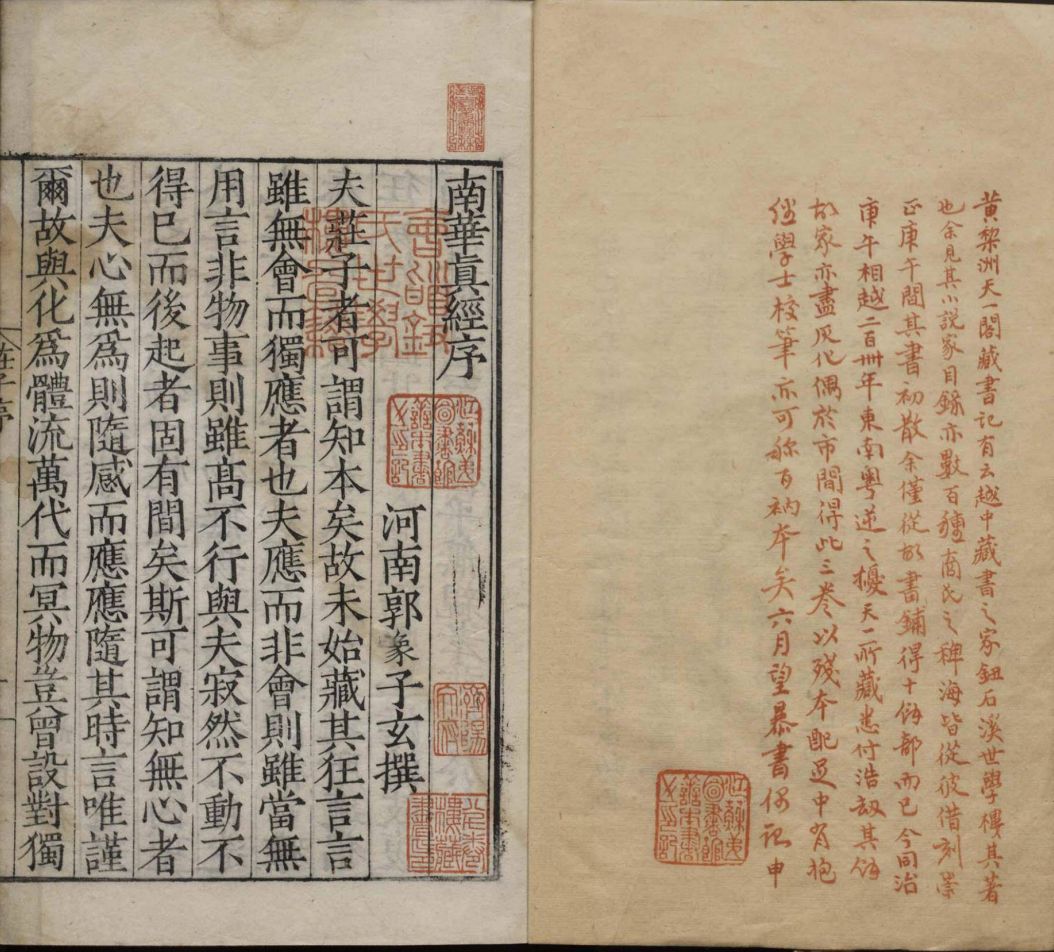 黃棃洲天一閣藏書記有云越中藏書之家鈕石溪世學樓其著
也余見其小說家目錄亦數百種商氏之稗海皆從彼借刻崇
正庚午間其書初散余僅從故書鋪得十餘部而已今同治
庚午相越二百卌年東南粤逆之擾天一所藏悉付浩刼其餘
故家亦盡灰化偶於市間得此三卷以殘本配足中有抱
經學士校筆亦可稱百衲本矣六月望暴書偶記申
江蘇第一圖書館善本書之印記
南華真經序
會稽鈕氏世學樓圖籍
江蘇第一圖書館善本書之印記
河南郭象子玄撰
夫莊子者可謂知本矣故未始藏其狂言言
雖無會而獨應者也夫應而非會則雖當無
用言非物事則雖高不行與夫寂然不動不
得已而後起者固有間矣斯可謂知無心者
也夫心無爲則隨感而應應隨其時言唯謹
爾故與化爲體流萬代而冥物豈曾設對獨
莊子序